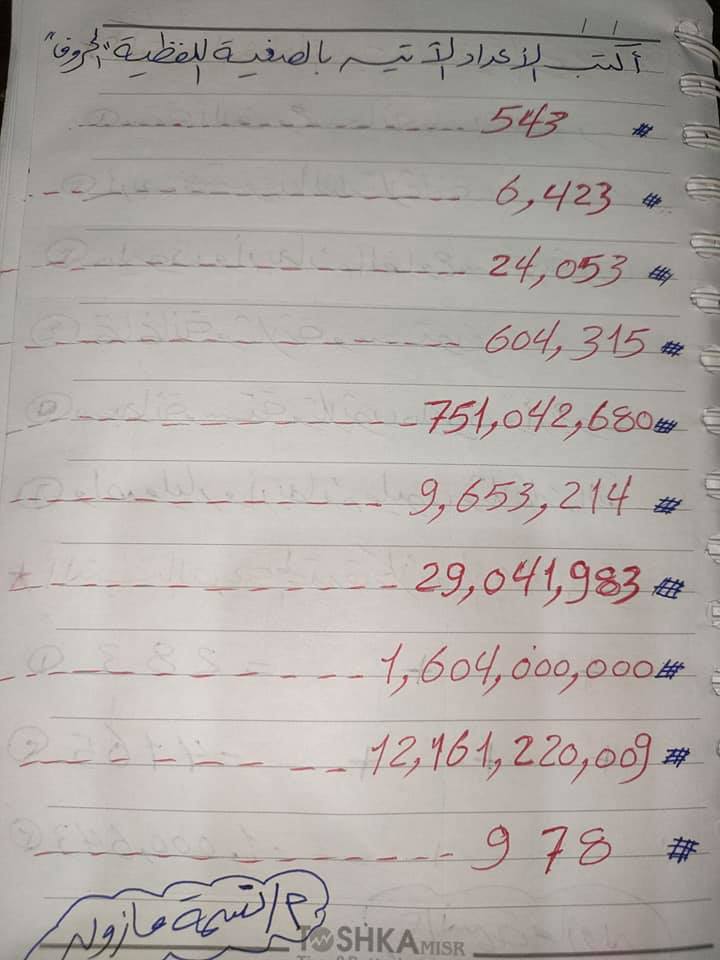 / /
أكتب الأعداد الآتيه بالصغية اللفظية "الحروف"
# 543 ------
# 6,423 ------
# 24,053 ------
# 604,315 ------
# 751,042,680 ------
# 9,653,214 ------
# 29,041,983 ------
# 1,604,000,000 ------
# 12,161,220,009 ------
# 978 ------
TOSHKA MISR